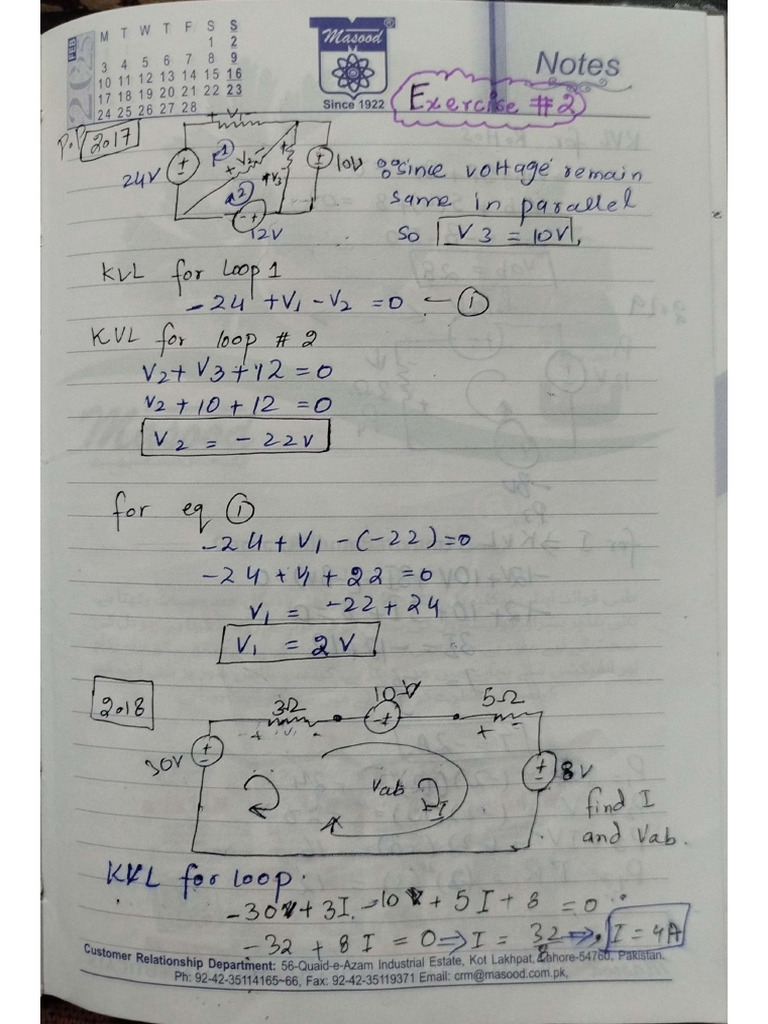 FEB 2025
M T W T F S S
1 2
3 4 5 6 7 8 9
10 11 12 13 14 15 16
17 18 19 20 21 22 23
24 25 26 27 28
Masood
Since 1922
Notes
Exercise #2
P.P 2.017
+ V1 -
24V
1
+ V2 -
+ V3
10V
2
12V
∵ since voltage remain
same in parallel
so V3 = 10V,
KVL for loop 1
-24 + V1 - V2 = 0 ← ①
KVL for loop # 2
V2 + V3 + 12 = 0
V2 + 10 + 12 = 0
V2 = - 22V
for eq ①
-24 + V1 - (-22) = 0
-24 + V1 + 22 = 0
V1 = -22 + 24
V1 = 2V
2.018
3Ω
10V
5Ω
30V
Vab
I
8V
find I
and Vab.
KVL for loop.
-30 + 3I - 10 + 5I + 8 = 0
-32 + 8I = 0 ⇒ I = 32/8 ⇒ I = 4A
Customer Relationship Department: 56-Quaid-e-Azam Industrial Estate, Kot Lakhpat, Lahore-54760, Pakistan.
Ph: 92-42-35114165~66, Fax: 92-42-35119371 Email: crm@masood.com.pk,